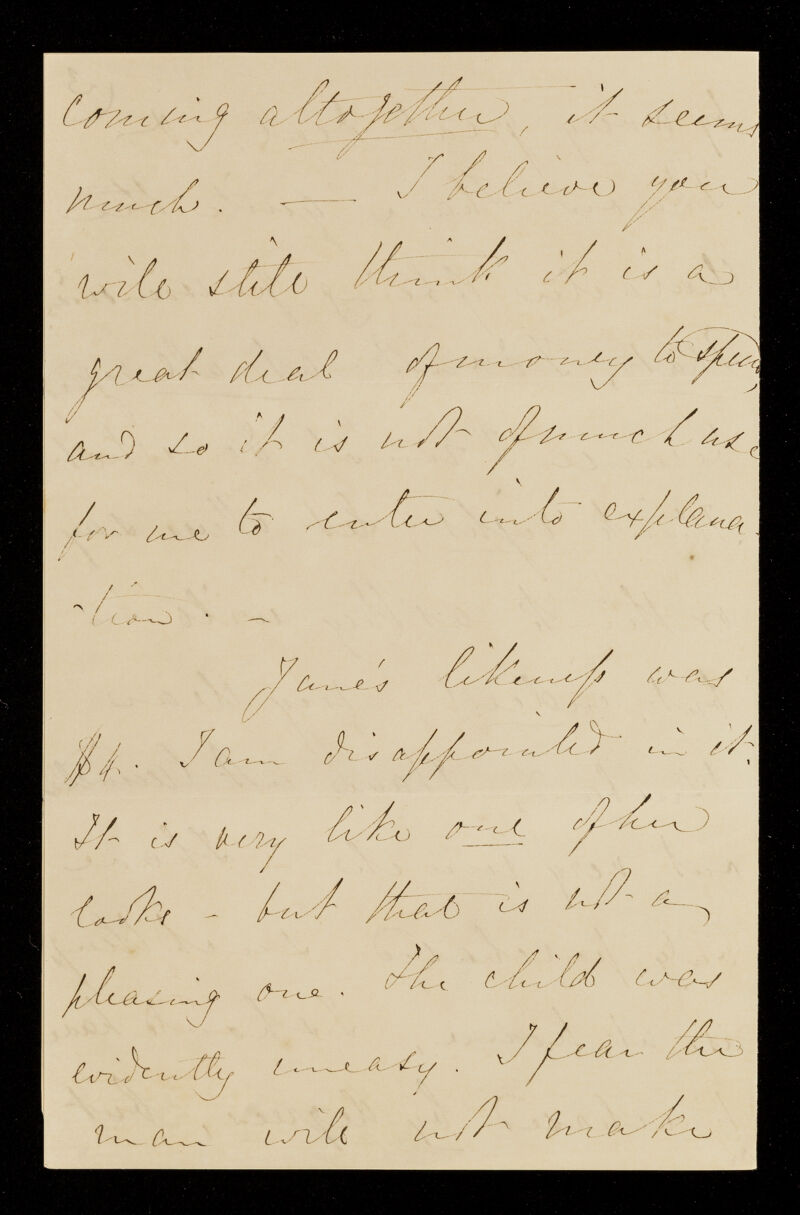 coming altogether, it seems
much. — I believe you
will still think it is a
great deal of money to spend,
and so it is not of much use
for me to enter into explana-
-tion. —
Jane's likeness was
$4. I am disappointed in it.
It is very like one of her
looks - but that is not a
pleasing one. The child was
evidently uneasy. I fear the
man will not make